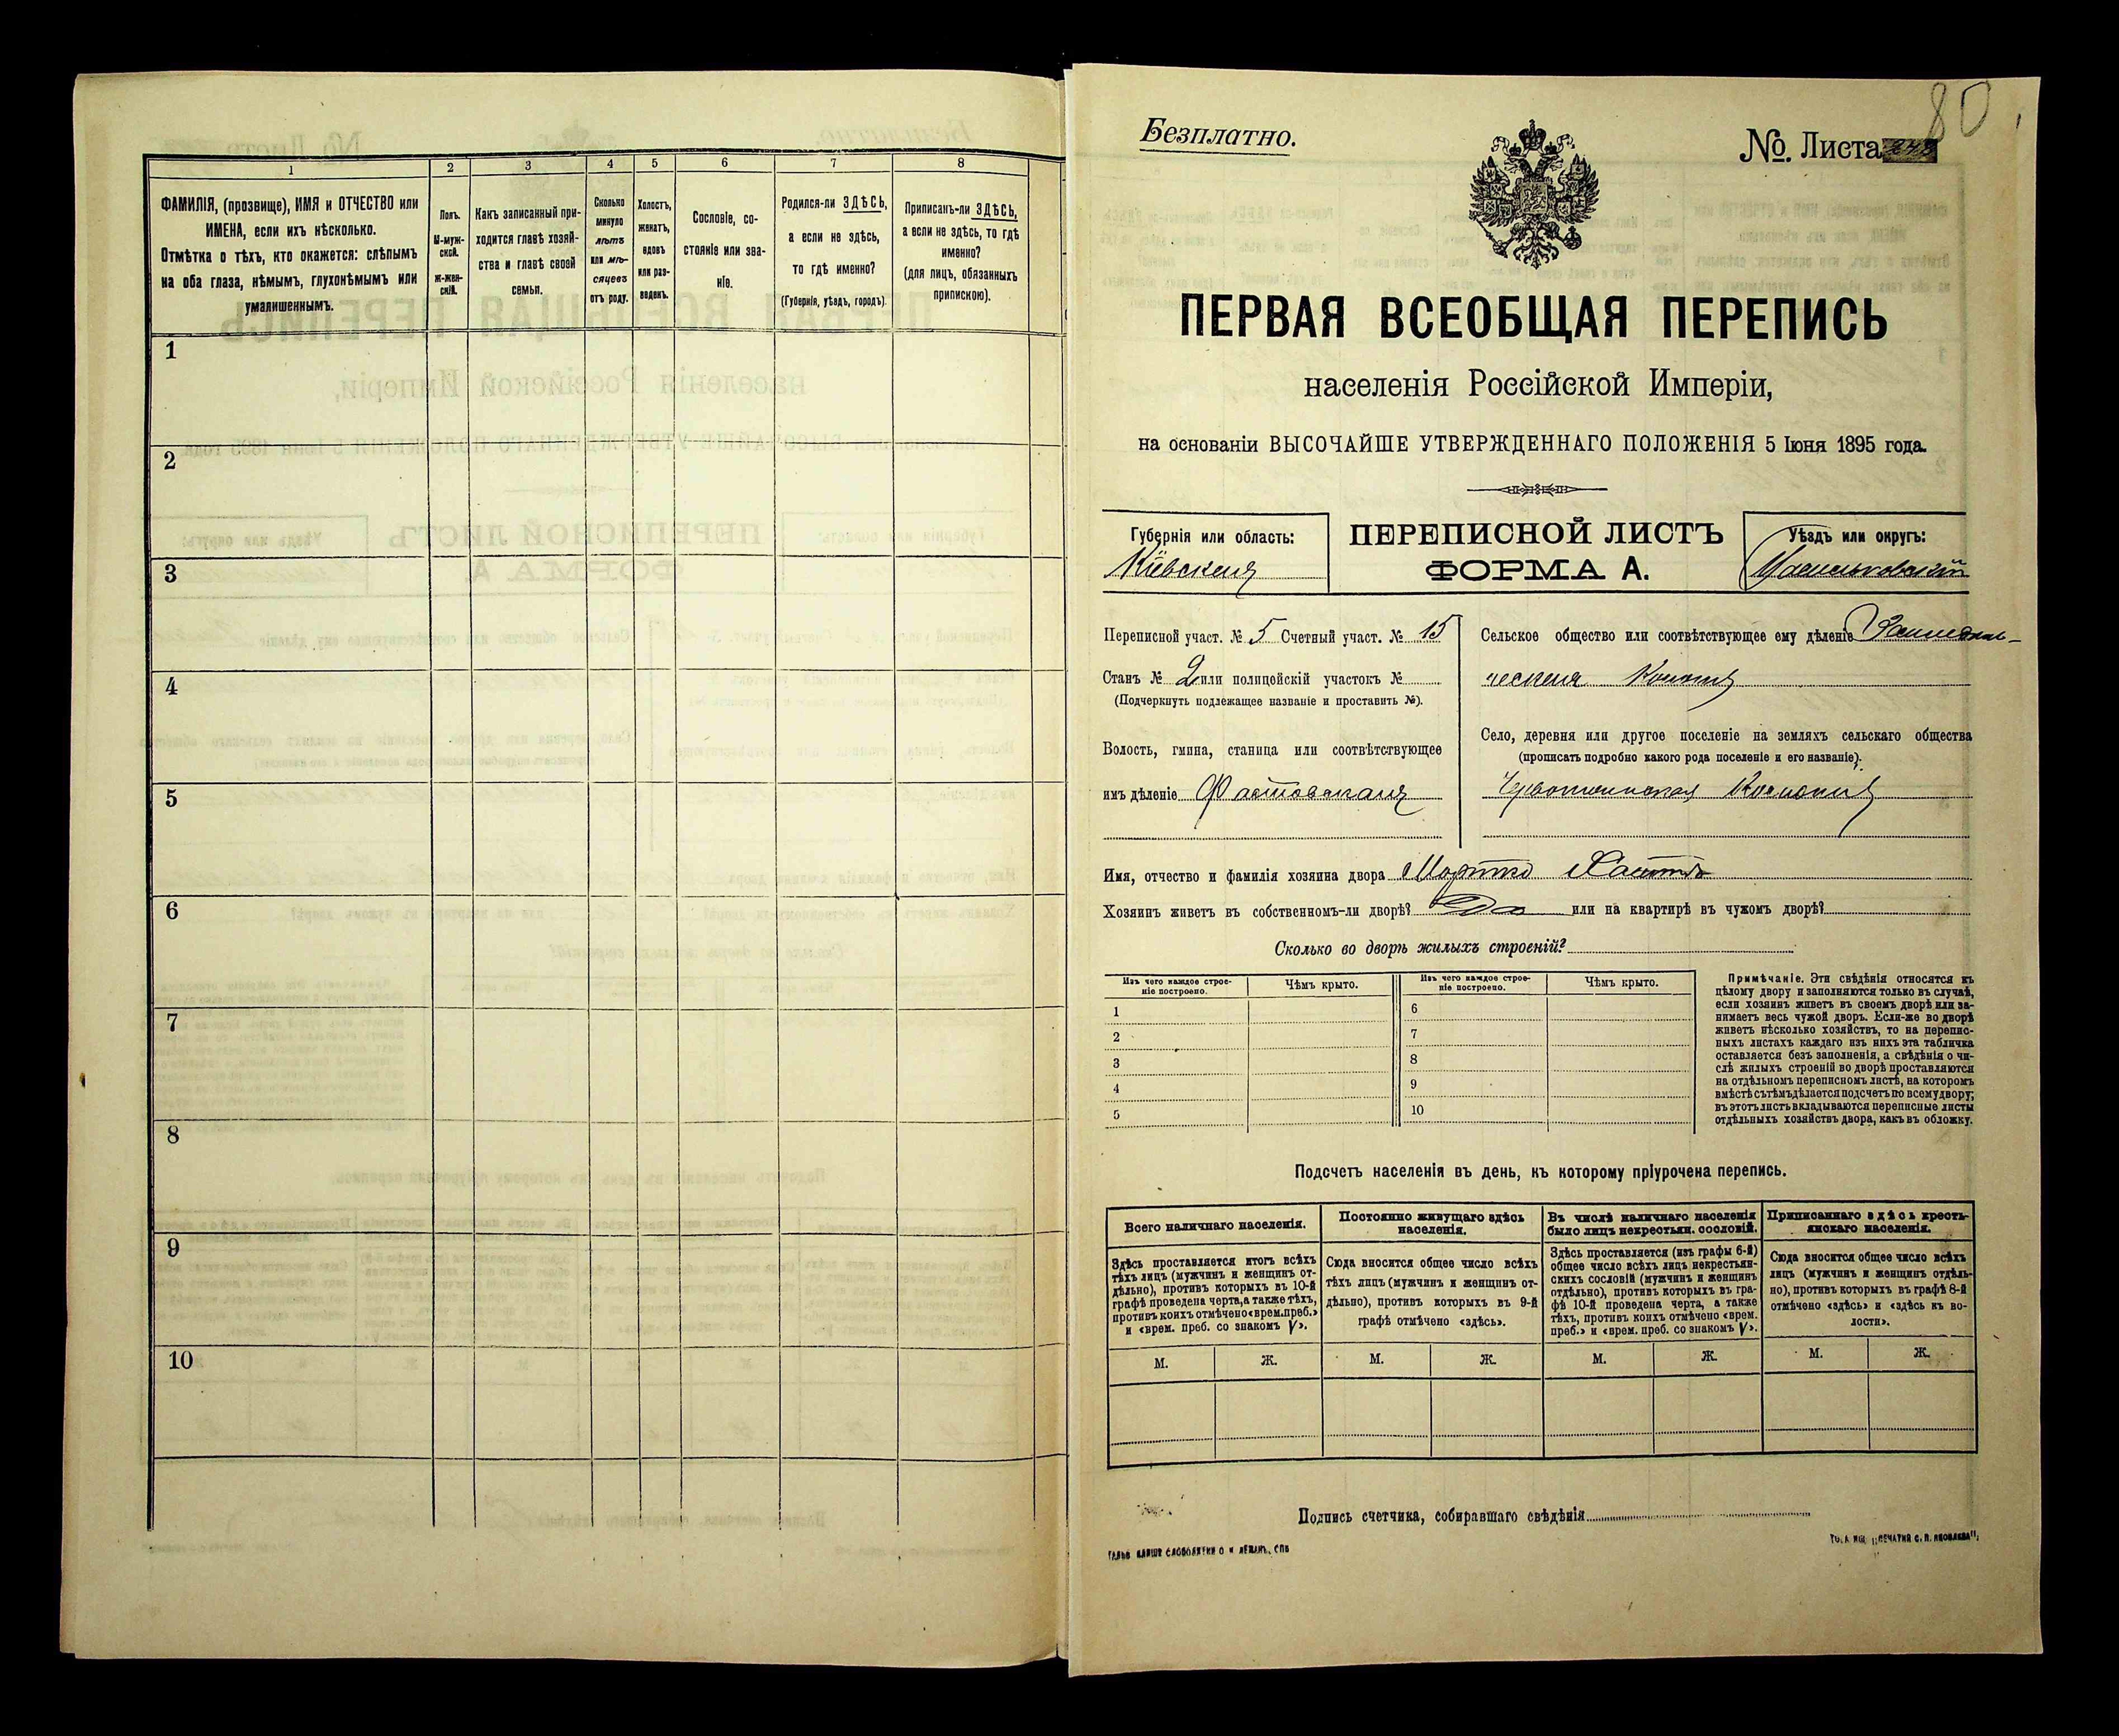 1 2 3 4 5 6 7 8
ФАМИЛІЯ, (прозвище), ИМЯ и ОТЧЕСТВО или
ИМЕНА, если ихъ нѣсколько.
Отмѣтка о тѣхъ, кто окажется: слѣпымъ
на оба глаза, нѣмымъ, глухонѣмымъ или
умалишеннымъ.
Полъ.
М-муж-
ской.
ж-жен-
скій.
Какъ записанный при-
ходится главѣ хозяй-
ства и главѣ своей
семьи.
Сколько
минуло
лѣтъ
или мѣ-
сяцевъ
отъ роду.
Холостъ,
женатъ,
вдовъ
или раз-
веденъ.
Сословіе, со-
стояніе или зва-
ніе.
Родился-ли ЗДѢСЬ,
а если не здѣсь,
то гдѣ именно?
(Губернія, уѣздъ, городъ).
Приписанъ-ли ЗДѢСЬ,
а если не здѣсь, то гдѣ
именно?
(для лицъ, обязанныхъ
припискою).
1
2
3
4
5
6
7
8
9
10
80
Безплатно.
№. Листа
ПЕРВАЯ ВСЕОБЩАЯ ПЕРЕПИСЬ
населенія Россійской Имперіи,
на основаніи ВЫСОЧАЙШЕ УТВЕРЖДЕННАГО ПОЛОЖЕНІЯ 5 Іюня 1895 года.
Губернія или область:
Кіевская
ПЕРЕПИСНОЙ ЛИСТЪ
ФОРМА А.
Уѣздъ или округъ:
Васильковскій
Переписной участ. № 5 Счетный участ. № 15
Станъ № 2 или полицейскій участокъ №
(Подчеркнуть подлежащее названіе и проставить №).
Волость, гмина, станица или соотвѣтствующее
имъ дѣленіе Фастовская
Сельское общество или соотвѣтствующее ему дѣленіе
Село, деревня или другое поселеніе на земляхъ сельскаго общества
(прописать подробно какого рода поселеніе и его названіе).
Имя, отчество и фамилія хозяина двора
Хозяинъ живетъ въ собственномъ-ли дворѣ? Да или на квартирѣ въ чужомъ дворѣ?
Сколько во дворѣ жилыхъ строеній?
Изъ чего каждое строе-
ніе построено.
Чѣмъ крыто.
Изъ чего каждое строе-
ніе построено.
Чѣмъ крыто.
1 6
2 7
3 8
4 9
5 10
Примѣчаніе. Эти свѣдѣнія относятся къ
цѣлому двору и заполняются только въ случаѣ,
если хозяинъ живетъ въ своемъ дворѣ или за-
нимаетъ весь чужой дворъ. Если-же во дворѣ
живетъ нѣсколько хозяйствъ, то на перепис-
ныхъ листахъ каждаго изъ нихъ эта табличка
оставляется безъ заполненія, а свѣдѣнія о чи-
слѣ жилыхъ строеній во дворѣ проставляются
на отдѣльномъ переписномъ листѣ, на которомъ
вмѣстѣ съ тѣмъ дѣлается подсчетъ по всему двору;
въ этотъ листъ вкладываются переписные листы
отдѣльныхъ хозяйствъ двора, какъ въ обложку.
Подсчетъ населенія въ день, къ которому пріурочена перепись.
Всего наличнаго населенія.
Здѣсь проставляется итогъ всѣхъ
тѣхъ лицъ (мужчинъ и женщинъ от-
дѣльно), противъ которыхъ въ 10-й
графѣ проведена черта, а также тѣхъ,
противъ коихъ отмѣчено «врем. преб.»
и «врем. преб. со знакомъ V».
Постоянно живущаго здѣсь
населенія.
Сюда вносится общее число всѣхъ
тѣхъ лицъ (мужчинъ и женщинъ от-
дѣльно), противъ которыхъ въ 9-й
графѣ отмѣчено «здѣсь».
Въ числѣ наличнаго населенія
было лицъ некрестьян. сословій.
Здѣсь проставляется (изъ графы 6-й)
общее число всѣхъ лицъ некрестьян-
скихъ сословій (мужчинъ и женщинъ
отдѣльно), противъ которыхъ въ гра-
фѣ 10-й проведена черта, а также
тѣхъ, противъ коихъ отмѣчено «врем.
преб.» и «врем. преб. со знакомъ V».
Приписаннаго здѣсь кресть-
янскаго населенія.
Сюда вносится общее число всѣхъ
лицъ (мужчинъ и женщинъ отдѣль-
но), противъ которыхъ въ графѣ 8-й
отмѣчено «здѣсь» и «здѣсь въ во-
лости».
М. Ж. М. Ж. М. Ж. М. Ж.
Подпись счетчика, собиравшаго свѣдѣнія